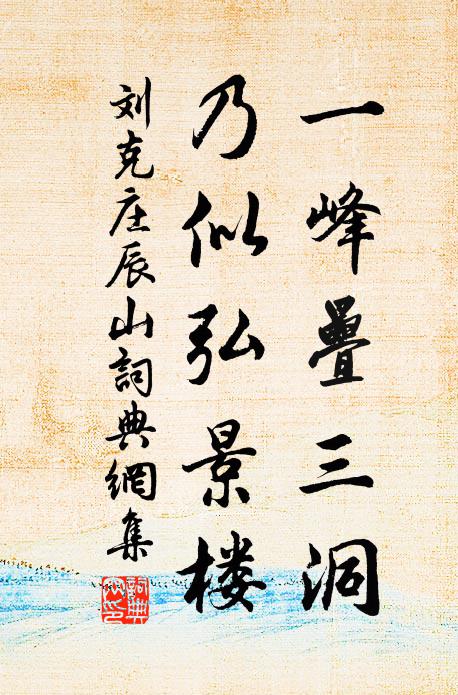 一峰疊三洞
乃似弘景楼
刘克庄辰山詞典網集